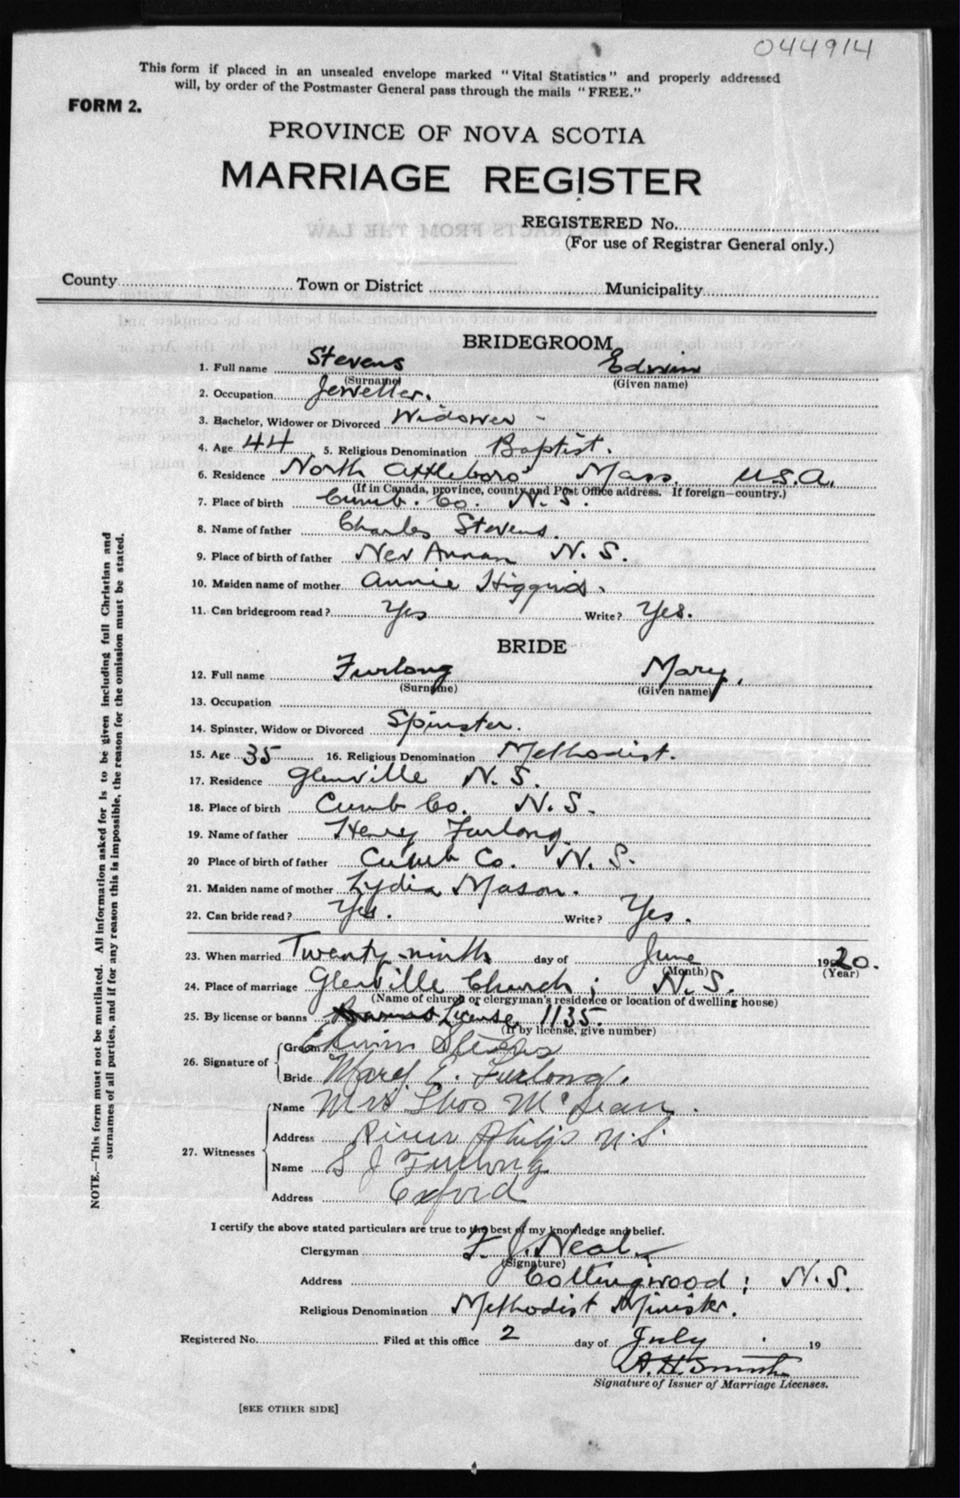 044914
This form if placed in an unsealed envelope marked "Vital Statistics" and properly addressed
will, by order of the Postmaster General pass through the mails "FREE."
FORM 2.
PROVINCE OF NOVA SCOTIA
MARRIAGE REGISTER
REGISTERED No.
(For use of Registrar General only.)
County Town or District Municipality
BRIDEGROOM
1. Full name Stevens Edwin
(Surname) (Given name)
2. Occupation Jeweller.
3. Bachelor, Widower or Divorced Widower -
4. Age 44 5. Religious Denomination Baptist.
6. Residence North Attleboro' Mass, U.S.A.
(If in Canada, province, county and Post Office address. If foreign—country.)
7. Place of birth Cumb. Co. N.S.
8. Name of father Charles Stevens.
9. Place of birth of father New Annan N.S.
10. Maiden name of mother Annie Higgins.
11. Can bridegroom read? Yes Write? Yes.
BRIDE
12. Full name Furlong Mary.
(Surname) (Given name)
13. Occupation
14. Spinster, Widow or Divorced Spinster.
15. Age 35 16. Religious Denomination Methodist.
17. Residence Glenville N.S.
18. Place of birth Cumb Co. N.S.
19. Name of father Henry Furlong.
20 Place of birth of father Cumb Co. N.S.
21. Maiden name of mother Lydia Mason.
22. Can bride read? Yes. Write? Yes.
23. When married Twenty-ninth day of June 1920.
(Month) (Year)
24. Place of marriage Glenville Church; N.S.
(Name of church or clergyman's residence or location of dwelling house)
25. By license or banns License 1135.
(If by license, give number)
26. Signature of Groom Edwin Stevens
Bride Mary E. Furlong.
27. Witnesses Name Mrs Thos
Address River Philip N.S.
Name S J Furlong
Address Oxford
I certify the above stated particulars are true to the best of my knowledge and belief.
Clergyman F. J. Neal
(Signature)
Address Collingwood; N.S.
Religious Denomination Methodist Minister.
Registered No. Filed at this office 2 day of July 19
A.H. Smith
Signature of Issuer of Marriage Licenses.
[SEE OTHER SIDE]
NOTE.—This form must not be mutilated. All information asked for is to be given including full Christian and
surnames of all parties, and if for any reason this is impossible, the reason for the omission must be stated.